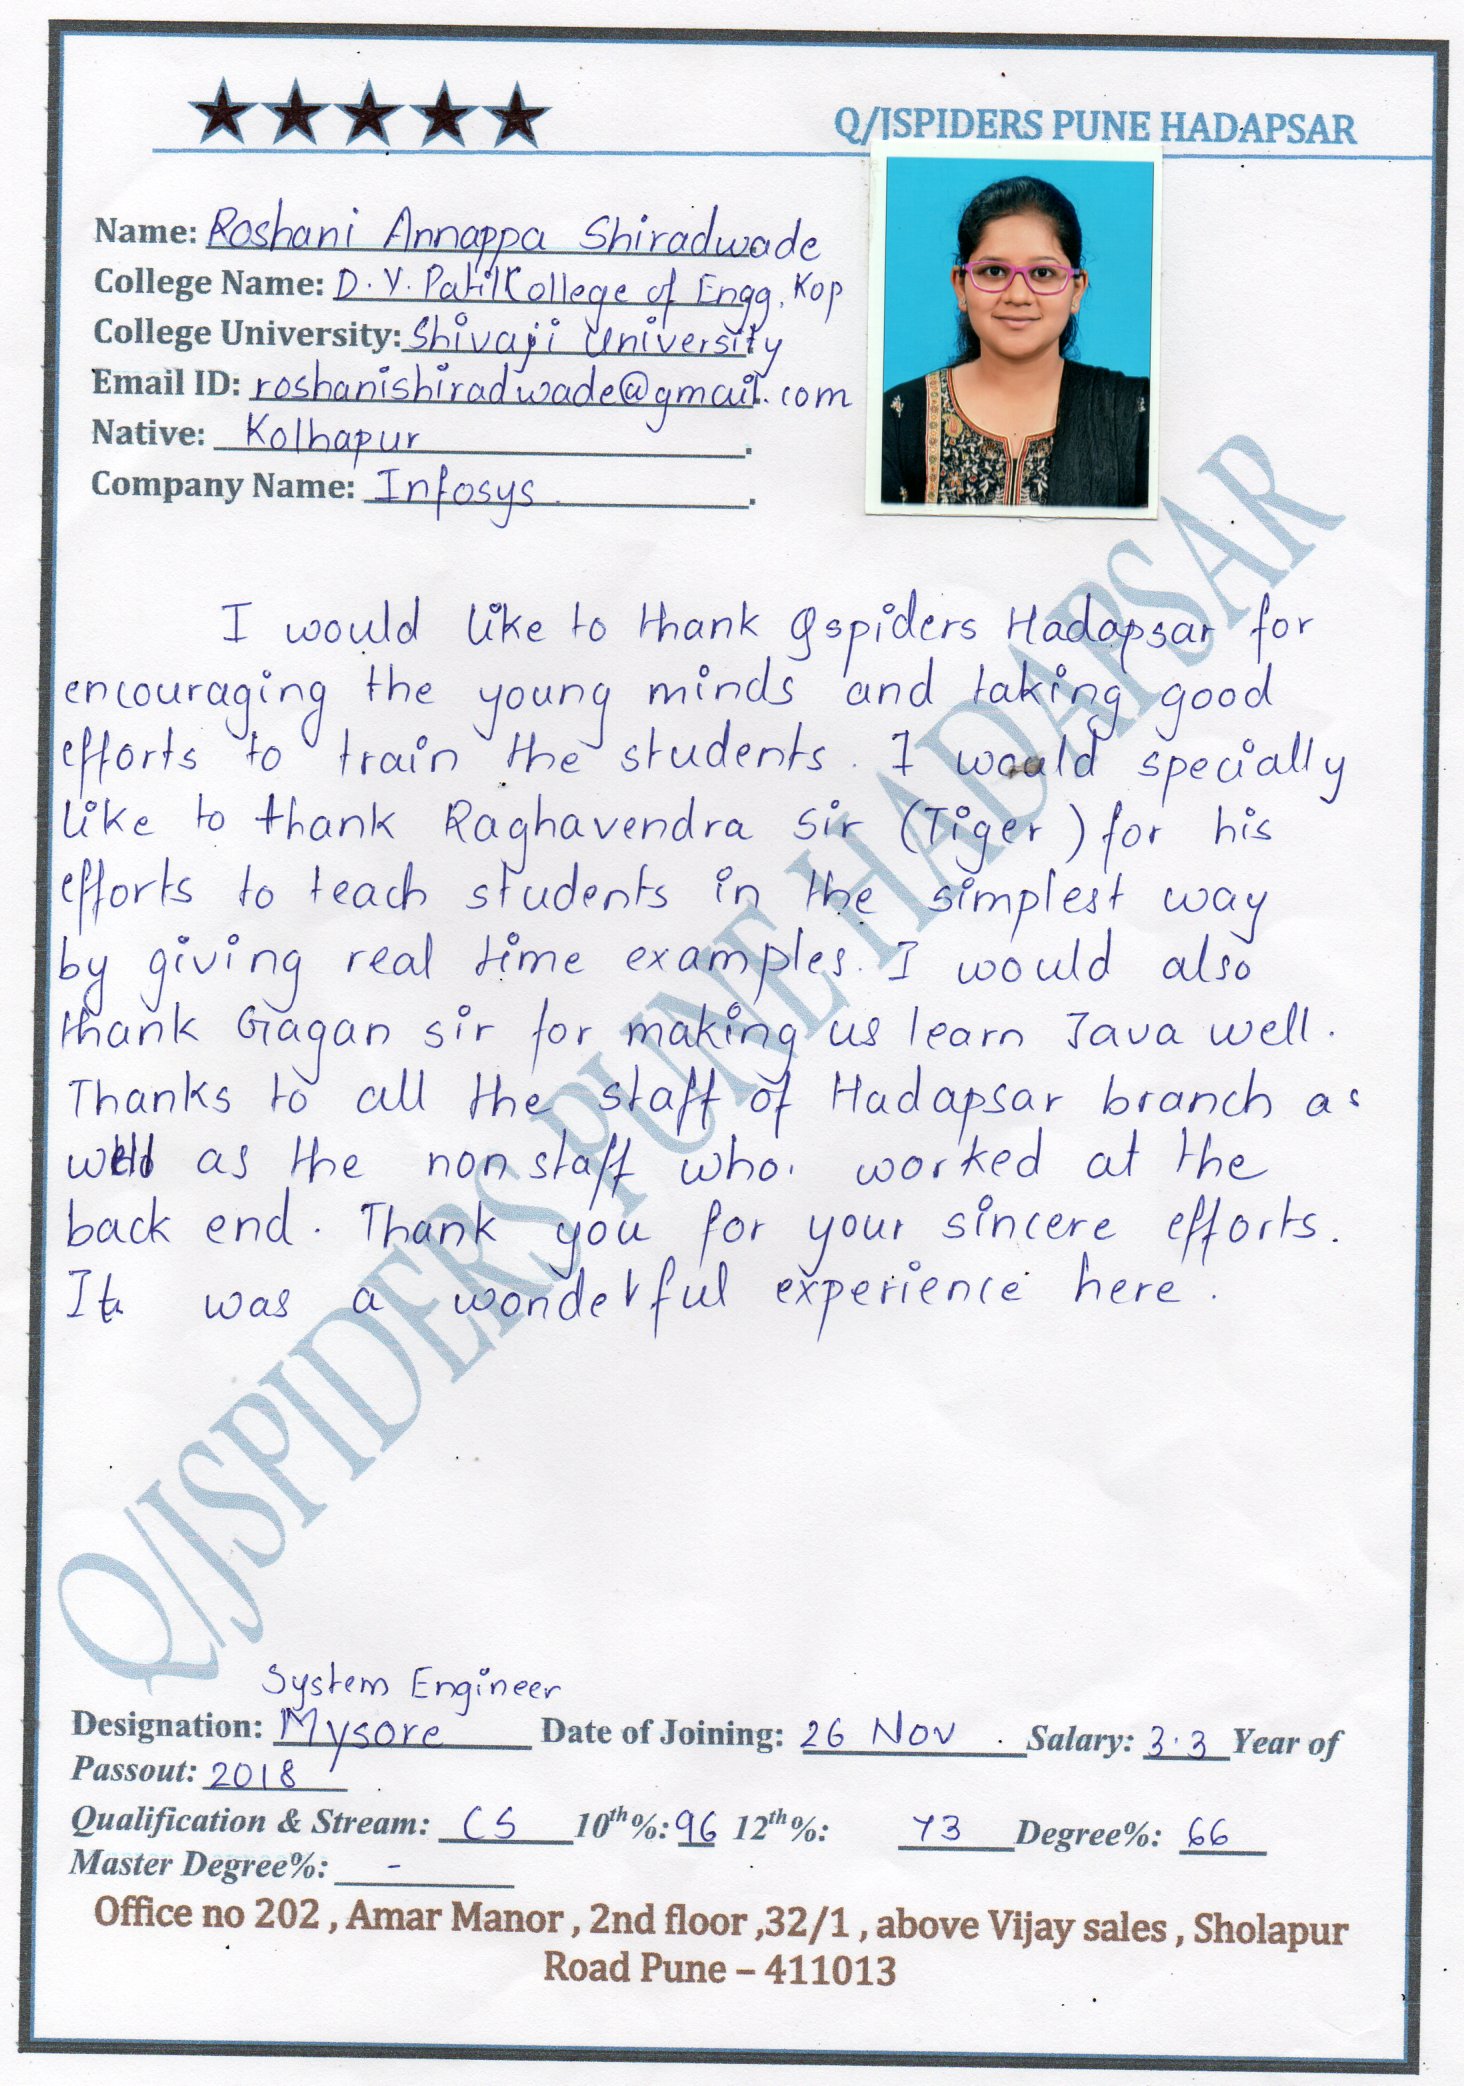 Q/JSPIDERS PUNE HADAPSAR
Name: Roshani Annappa Shiradwade
College Name: D.Y. Patil College of Engg, Kop
College University: Shivaji University
Email ID: roshanishiradwade@gmail.com
Native: Kolhapur .
Company Name: Infosys. .
I would like to thank Qspiders Hadapsar for
encouraging the young minds and taking good
efforts to train the students. I would specially
like to thank Raghavendra Sir (Tiger) for his
efforts to teach students in the simplest way
by giving real time examples. I would also
thank Gagan sir for making us learn Java well.
Thanks to all the staff of Hadapsar branch as
well as the non staff who worked at the
back end. Thank you for your sincere efforts.
It was a wonderful experience here.
Q/JSPIDERS PUNE HADAPSAR
System Engineer
Designation: Mysore Date of Joining: 26 Nov. Salary: 3.3 Year of
Passout: 2018
Qualification & Stream: CS 10th%: 96 12th%: 73 Degree%: 66
Master Degree%: -
Office no 202 , Amar Manor , 2nd floor ,32/1 , above Vijay sales , Sholapur
Road Pune – 411013